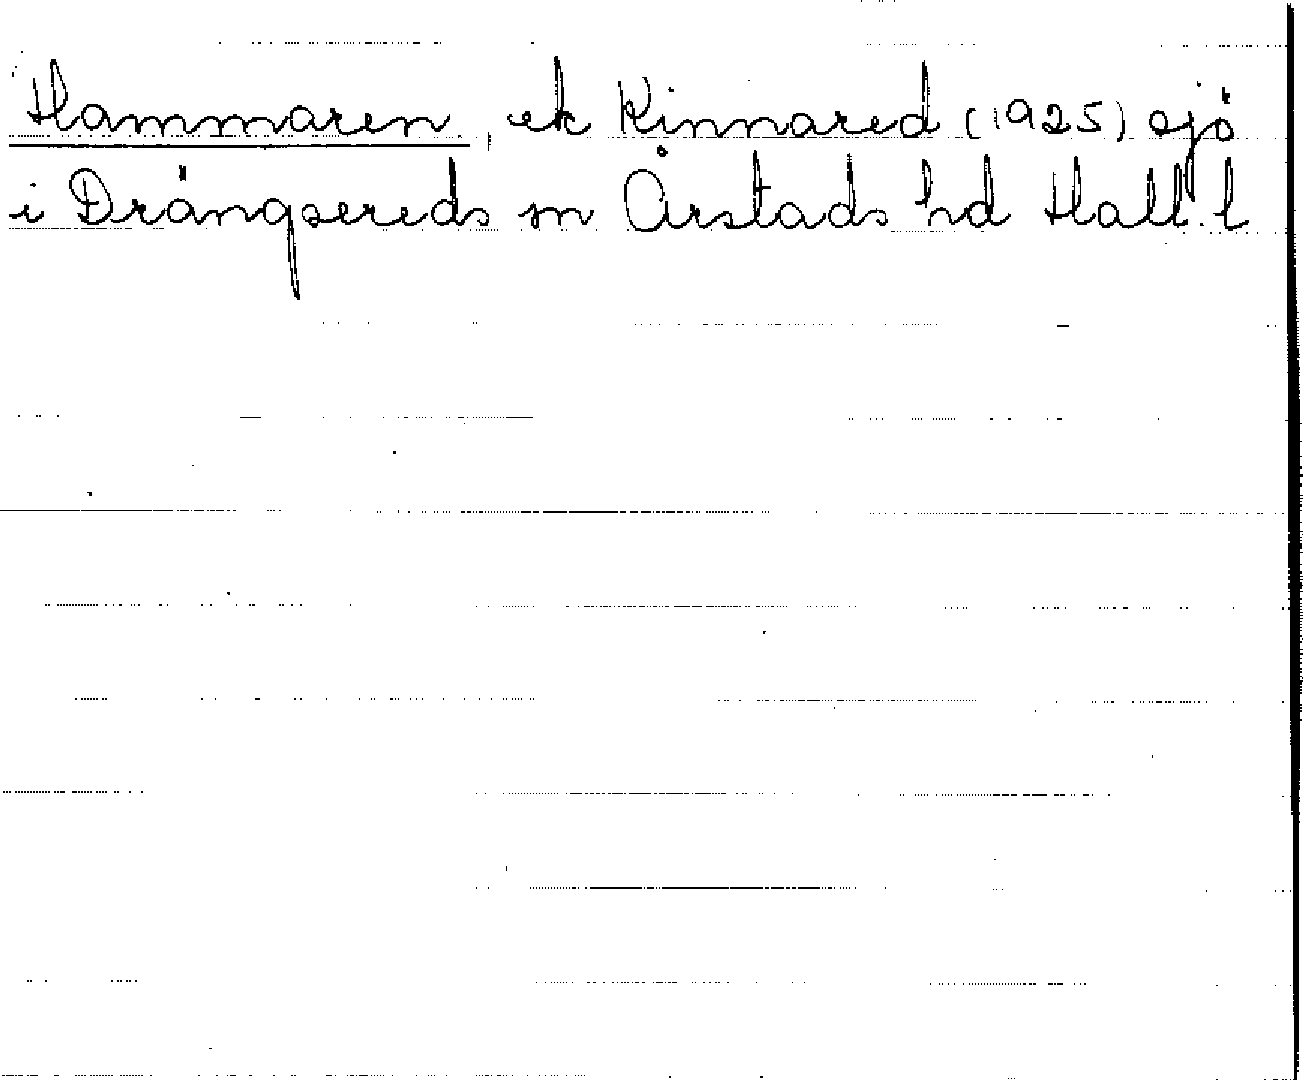 Hammaren, ek Kinnared (1925) sjö
i Drängsereds sn Årstads hd Hall. l